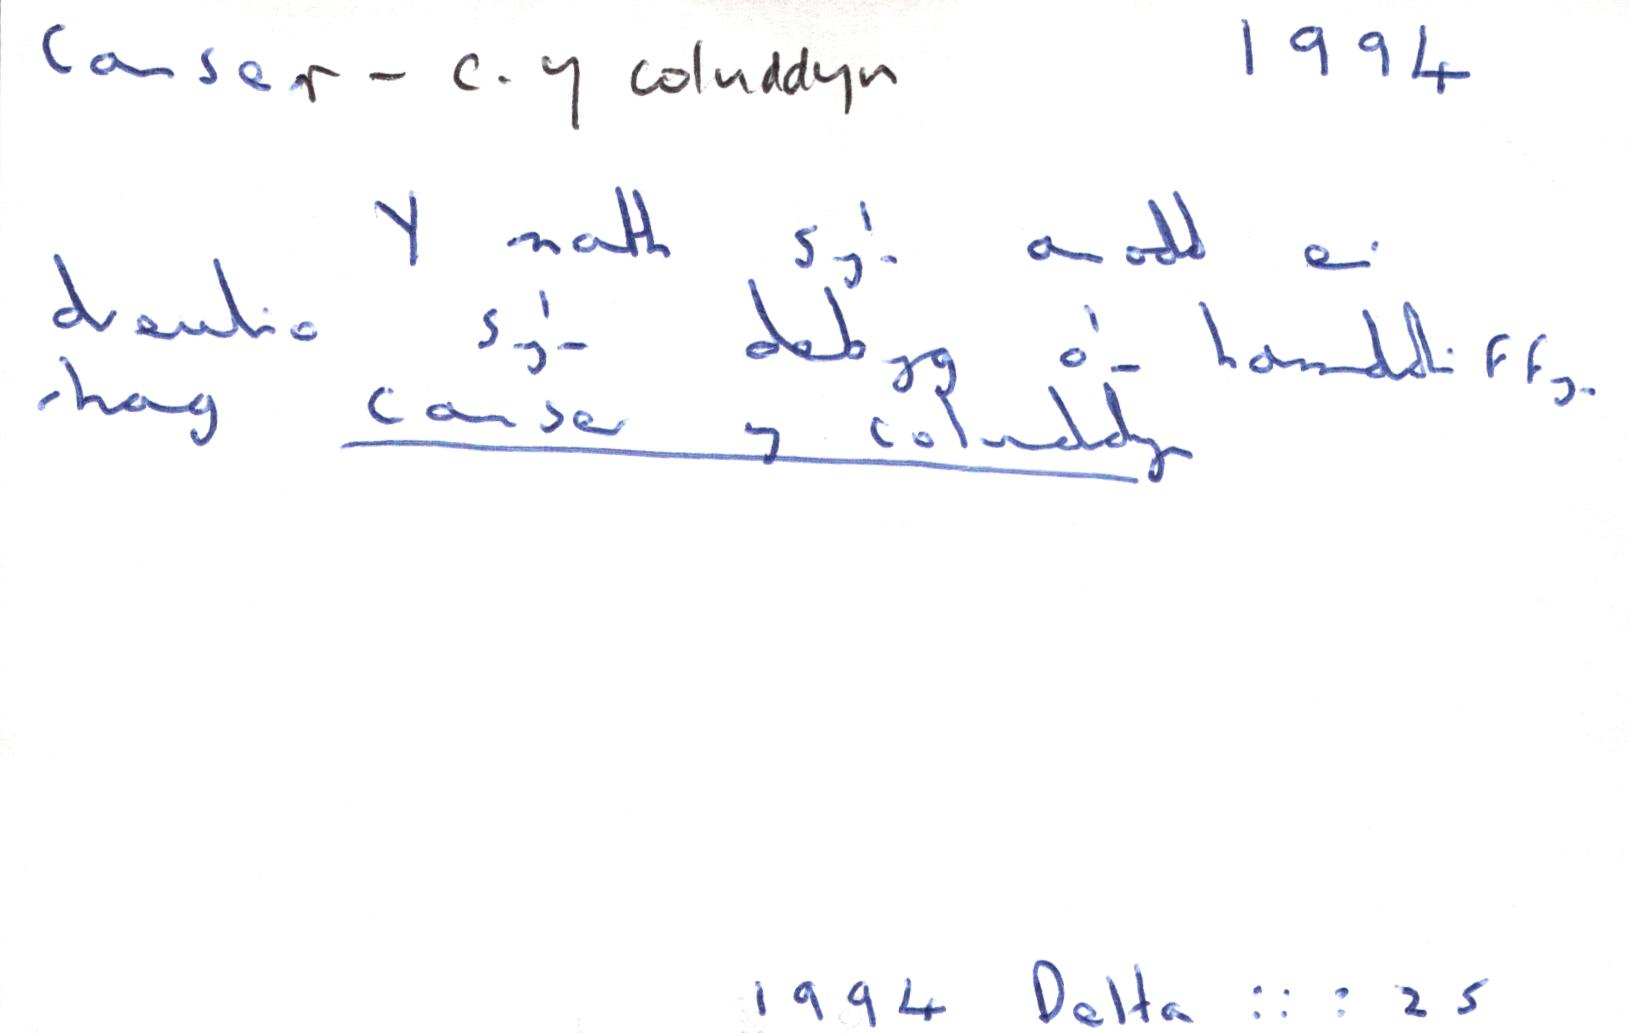 Canser - c. y coluddyn 1994
Y math sy'n anodd ei
dreulio sy'n debyg o'n hamddiffyn
rhag canser y coluddyn
1994 Delta :: : 25